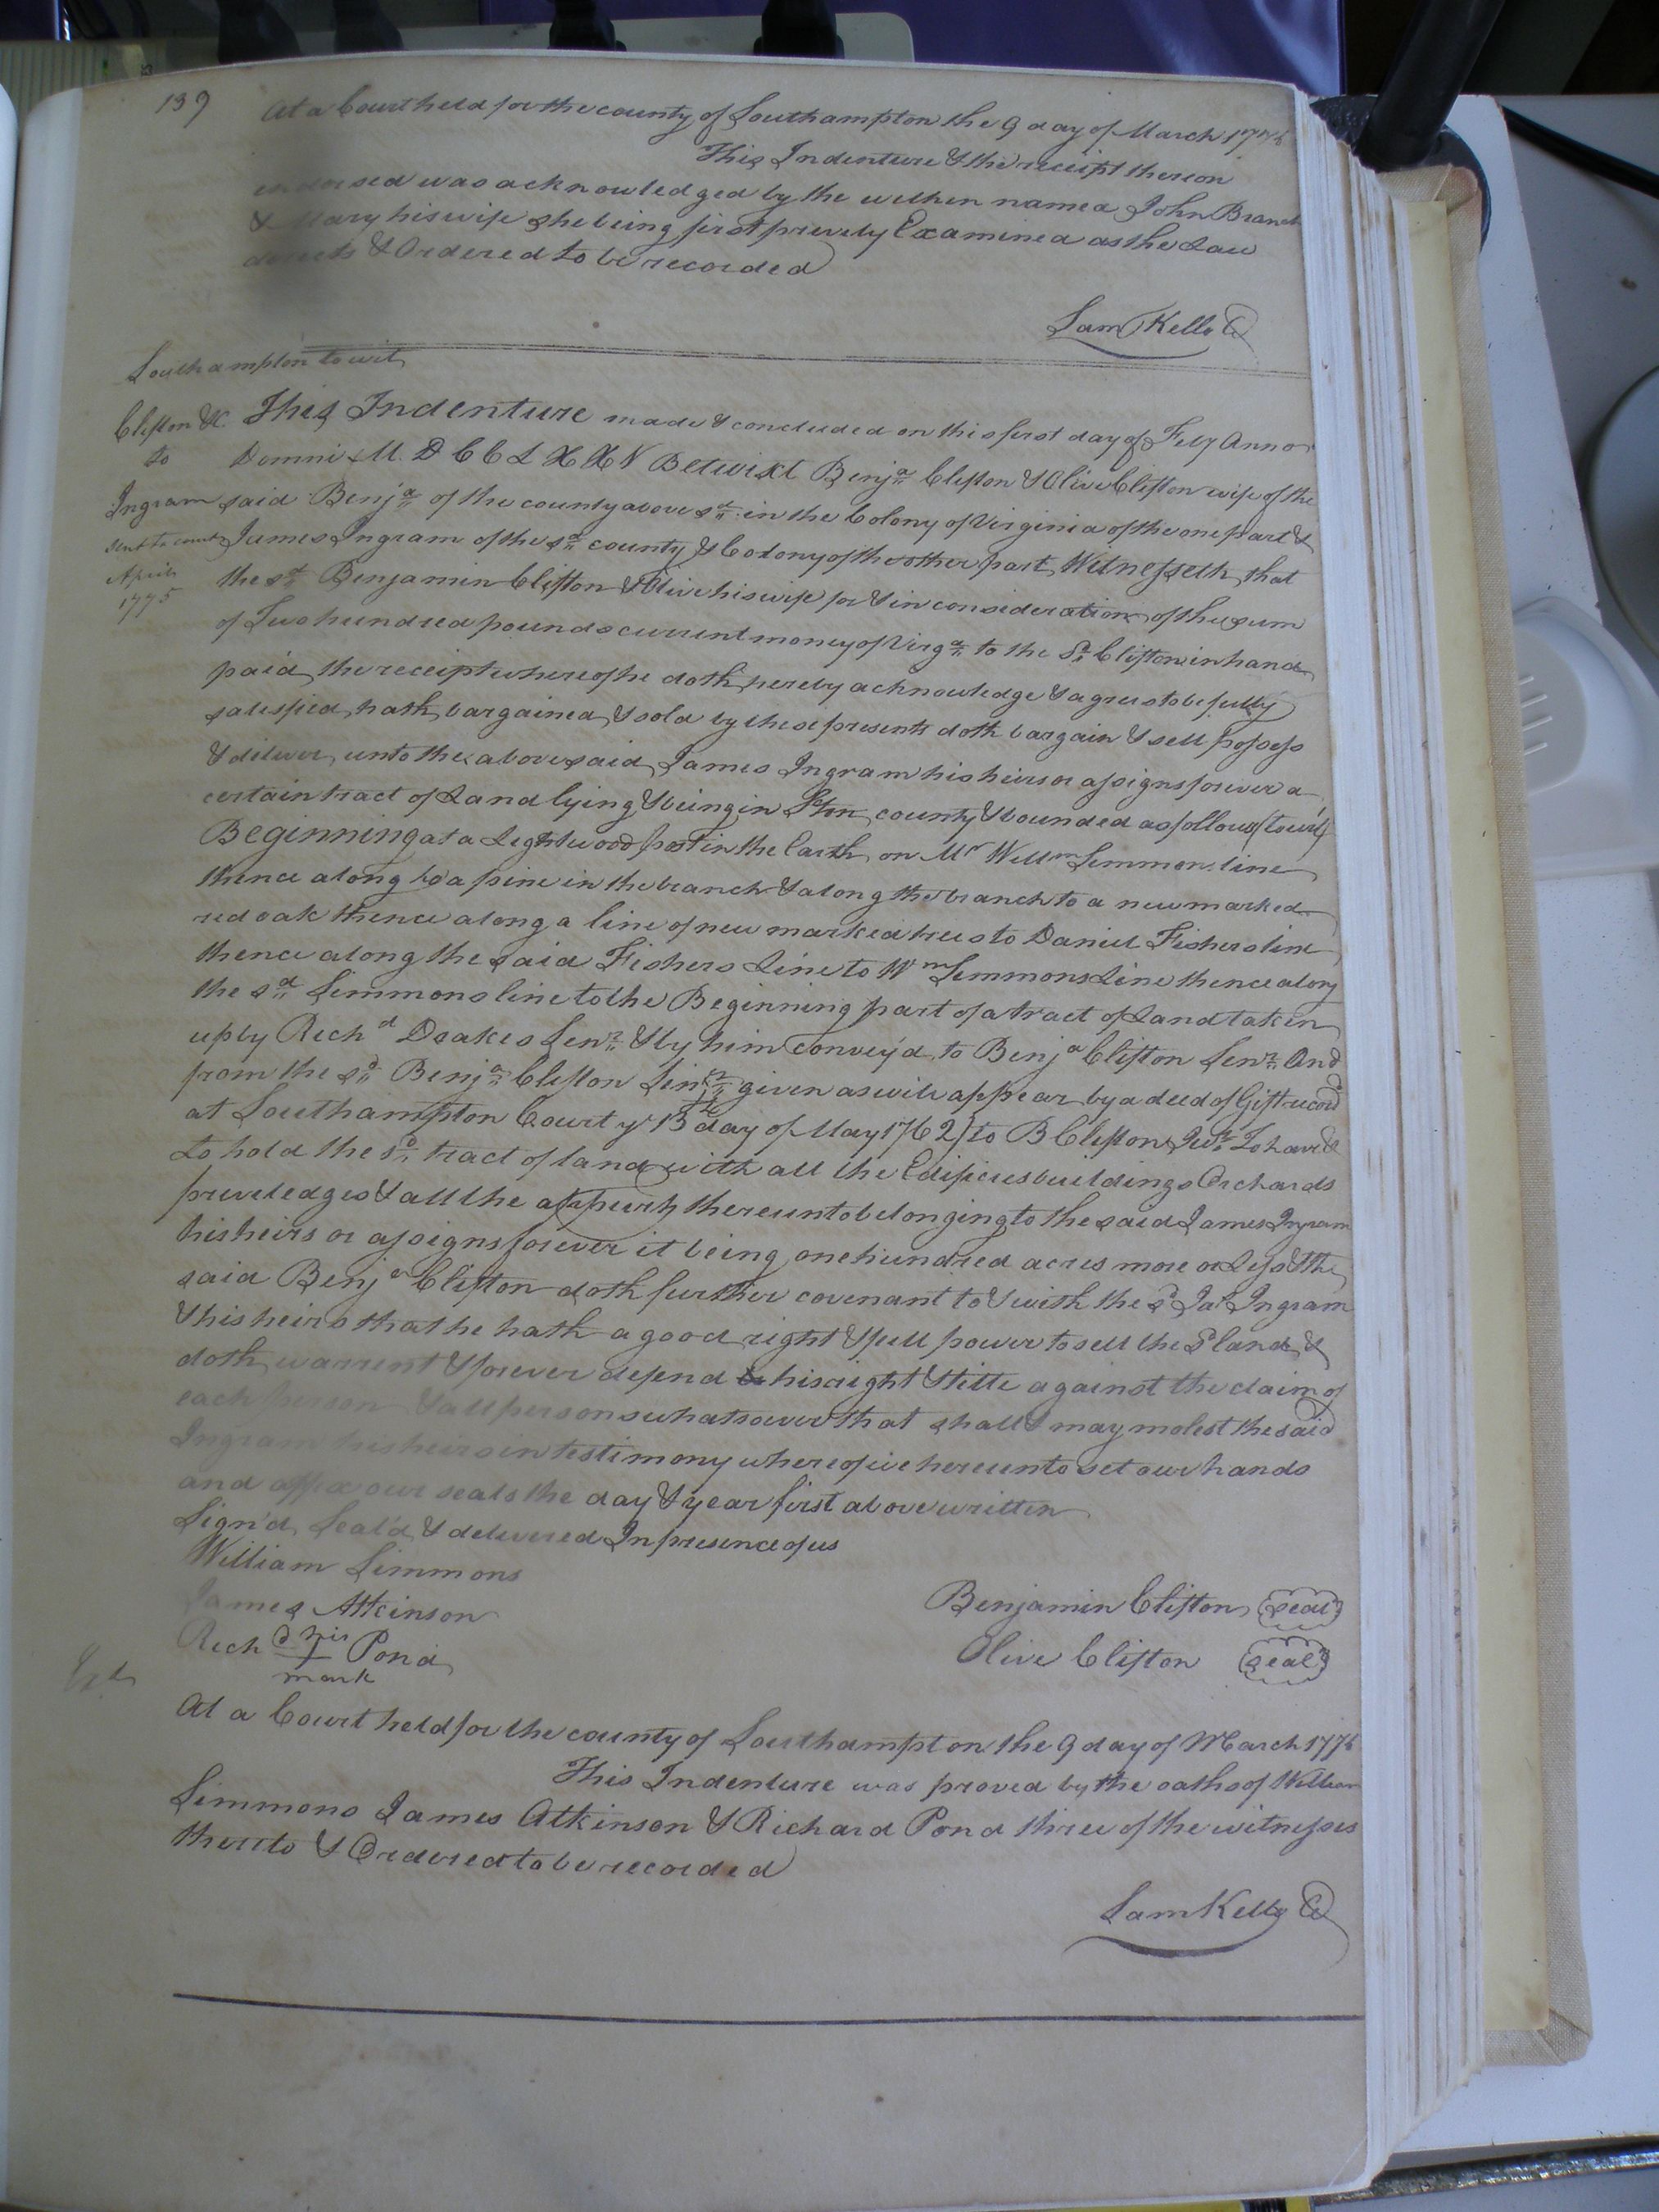 139
At a Court held for the county of Southampton the 9 day of March 177
This Indenture & the receipt thereon
endorsed was acknowledged by the within named John Branch
& Mary his wife she being first privily Examined as the Law
directs & Ordered to be recorded
Sam Kello C
Southampton towit
Clifton &c.
to
Ingram
sent to
April
1775
This Indenture made & concluded on this first day of Feby Anno
Domni M.D C C L X X V Betwixt Benja Clifton & Olive Clifton wife of the
said Benja of the county above sd in the Colony of Virginia of the one part &
James Ingram of the sd county & Colony of the other part Witnesseth that
the sd Benjamin Clifton & Olive his wife for & in consideration of the sum
of Two hundred pounds current money of Virga to the Sd Clifton in hand
paid the receipt whereof he doth hereby acknowledge & agrees to be fully
satisfied hath bargained & sold by these presents doth bargain & sell possess
& deliver unto the above said James Ingram his heirs or assigns forever a
certain tract of Land lying & being in Ston county & bounded as follows (towit)
Beginning at a Lightwood post in the Earth on Mr Willm Simmon line
thence along to a pine in the branch & along the branch to a new marked
red oak thence along a line of new marked trees to Daniel Fishers line
thence along the said Fishers Line to Wm Simmons Line thence along
the sd Simmons line to the Beginning part of a tract of Land taken
up by Richd Drakes Senr & by him Convey'd to Benja Clifton Senr And
from the sd Benja Clifton Sinr given as will appear by a deed of Gift record
at Southampton Court ye 13th day of May 1762) to B Clifton Junr To have &
to hold the sd tract of land with all the Edificies buildings Orchards
priveledges & all the appurts thereunto belonging to the said James Ingram
his heirs or assigns forever it being one hundred acres more or Less & the
said Benja Clifton doth further covenant to & with the sd Jas Ingram
& his heirs that he hath a good right & full power to sell the sd land &
doth warrent & forever defend his right & title against the claim of
each person & all persons whatsoever that shall & may molest the said
Ingram his heirs in testimony whereof we hereunto set our hands
and affix our seals the day & year first above written
Sign'd Seal'd & delivered In presence of us
William Simmons
James Atkinson
Richd his Pond
mark
Benjamin Clifton seal
Olive Clifton seal
At a Court held for the county of Southampton the 9 day of March 177
This Indenture was proved by the oaths of William
Simmons James Atkinson & Richard Pond three of the witnesses
thereto & Ordered to be recorded
Sam Kello C